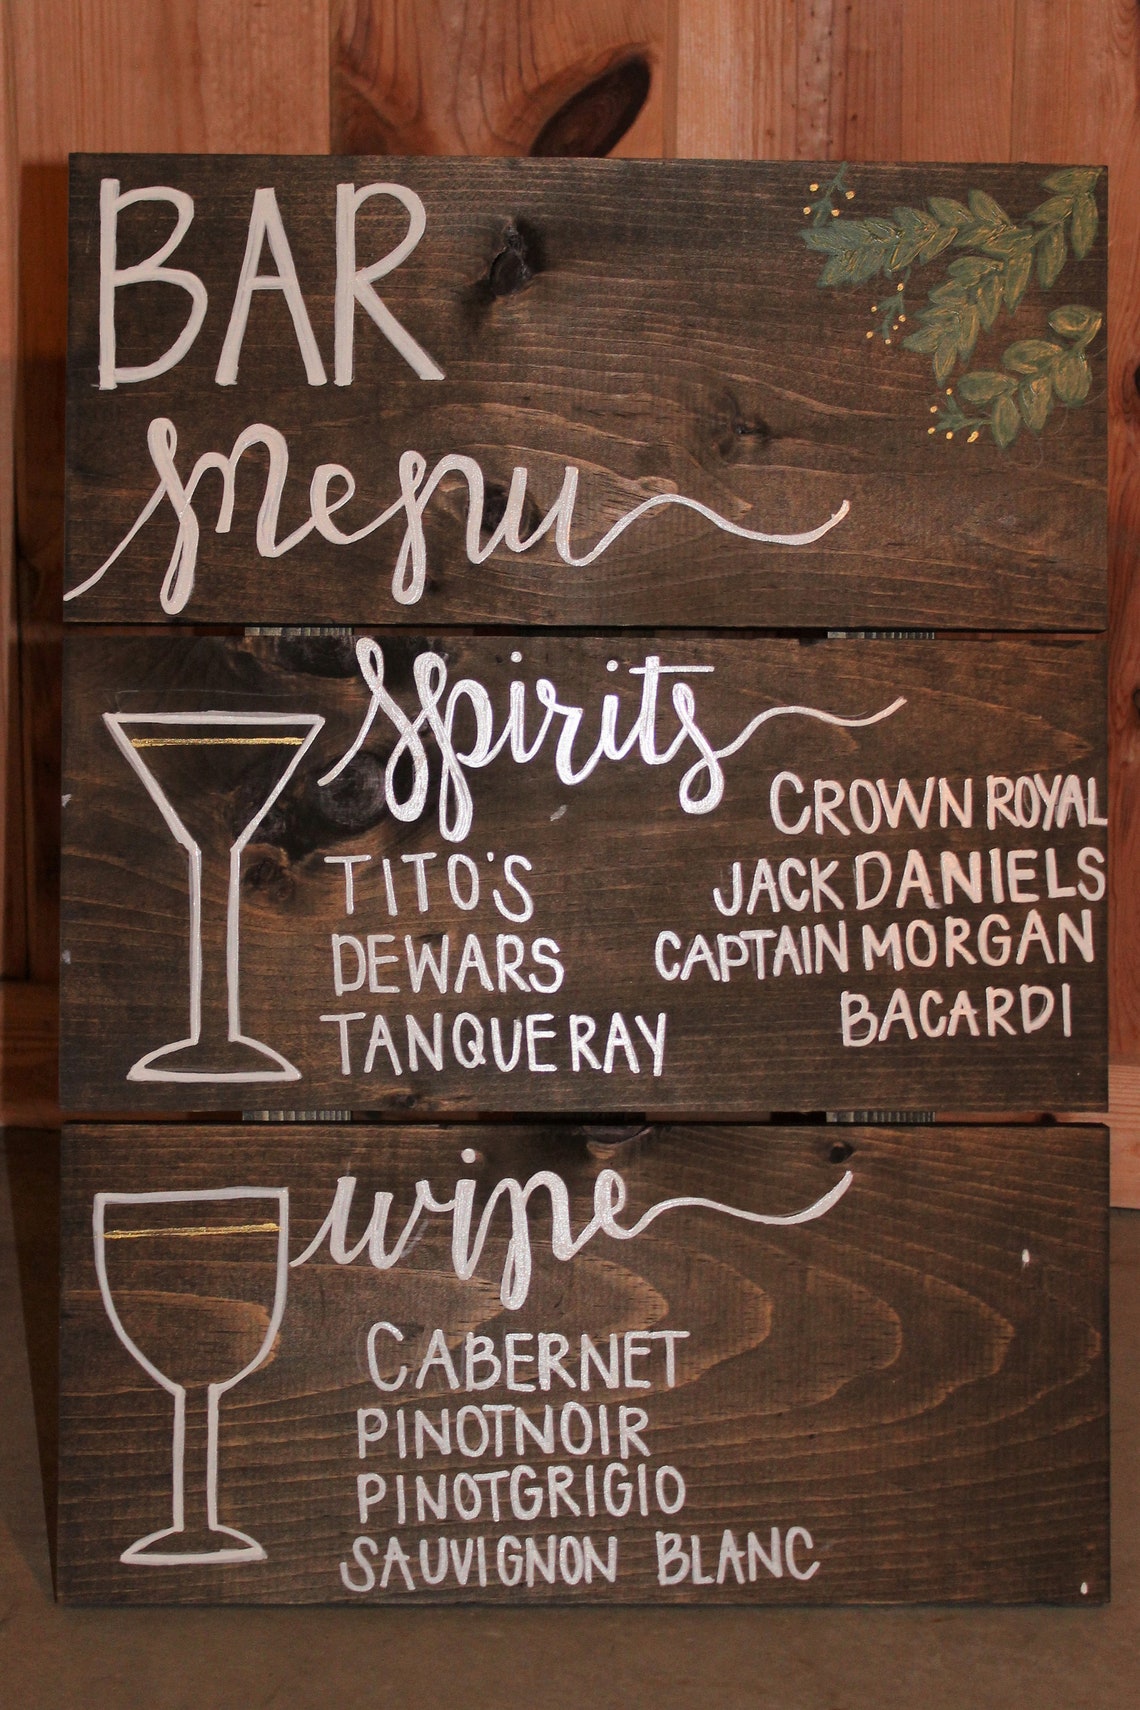 BAR
menu
spirits
TITO'S
DEWARS
TANQUERAY
CROWN ROYAL
JACK DANIELS
CAPTAIN MORGAN
BACARDI
wine
CABERNET
PINOT NOIR
PINOT GRIGIO
SAUVIGNON BLANC